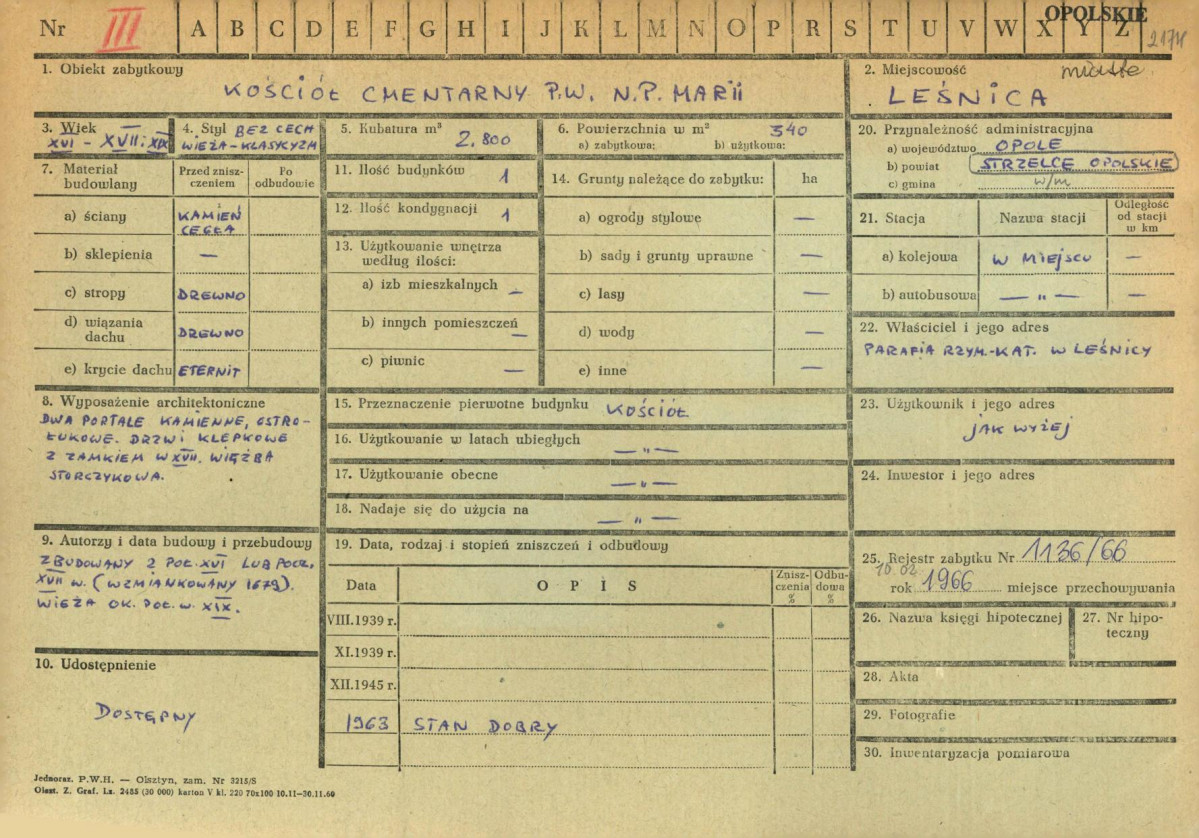 Nr III A B C D E F G H I J K L M N O P R S T U V W X Y Z OPOLSKIE
1. Obiekt zabytkowy
KOŚCIÓŁ CMENTARNY P.W. N.P. MARII
2. Miejscowość miasto
LEŚNICA
3. Wiek
XVI – XVII. XIX
4. Styl BEZ CECH
WIEŻA-KLASYCYZM
5. Kubatura m³ 2.800
6. Powierzchnia w m² 340
a) zabytkowa: b) użytkowa:
7. Materiał
budowlany
Przed znisz-
czeniem
Po
odbudowie
a) ściany KAMIEŃ
CEGŁA
b) sklepienia —
c) stropy DREWNO
d) wiązania
dachu DREWNO
e) krycie dachu ETERNIT
8. Wyposażenie architektoniczne
DWA PORTALE KAMIENNE, OSTRO-
ŁUKOWE. DRZWI KLEPKOWE
Z ZAMKIEM W XVII. WIĘŹBA
STORCZYKOWA.
9. Autorzy i data budowy i przebudowy
ZBUDOWANY 2 POŁ. XVI LUB POCZ.
XVII W. (WZMIANKOWANY 1679).
WIEŻA OK. POŁ. W. XIX.
10. Udostępnienie
DOSTĘPNY
11. Ilość budynków 1
12. Ilość kondygnacji 1
13. Użytkowanie wnętrza
według ilości:
a) izb mieszkalnych —
b) innych pomieszczeń —
c) piwnic —
14. Grunty należące do zabytku: ha
a) ogrody stylowe —
b) sady i grunty uprawne —
c) lasy —
d) wody —
e) inne —
15. Przeznaczenie pierwotne budynku KOŚCIÓŁ
16. Użytkowanie w latach ubiegłych — " —
17. Użytkowanie obecne — " —
18. Nadaje się do użycia na — " —
19. Data, rodzaj i stopień zniszczeń i odbudowy
Data OPIS Znisz-
czenia
%
Odbu-
dowa
%
VIII.1939 r.
XI.1939 r.
XII.1945 r.
1963 STAN DOBRY
20. Przynależność administracyjna
a) województwo OPOLE
b) powiat STRZELCE OPOLSKIE
c) gmina w/m
21. Stacja Nazwa stacji Odległość
od stacji
w km
a) kolejowa W MIEJSCU —
b) autobusowa — " — —
22. Właściciel i jego adres
PARAFIA RZYM.-KAT. W LEŚNICY
23. Użytkownik i jego adres
JAK WYŻEJ
24. Inwestor i jego adres
25. Rejestr zabytku Nr 1136/66
10.02
rok 1966 miejsce przechowywania
26. Nazwa księgi hipotecznej
27. Nr hipo-
teczny
28. Akta
29. Fotografie
30. Inwentaryzacja pomiarowa
Jednoraz. P.W.H. — Olsztyn, zam. Nr 3215/S
Olszt. Z. Graf. Lz. 2485 (30 000) karton V kl. 220 70x100 10.11-30.11.60